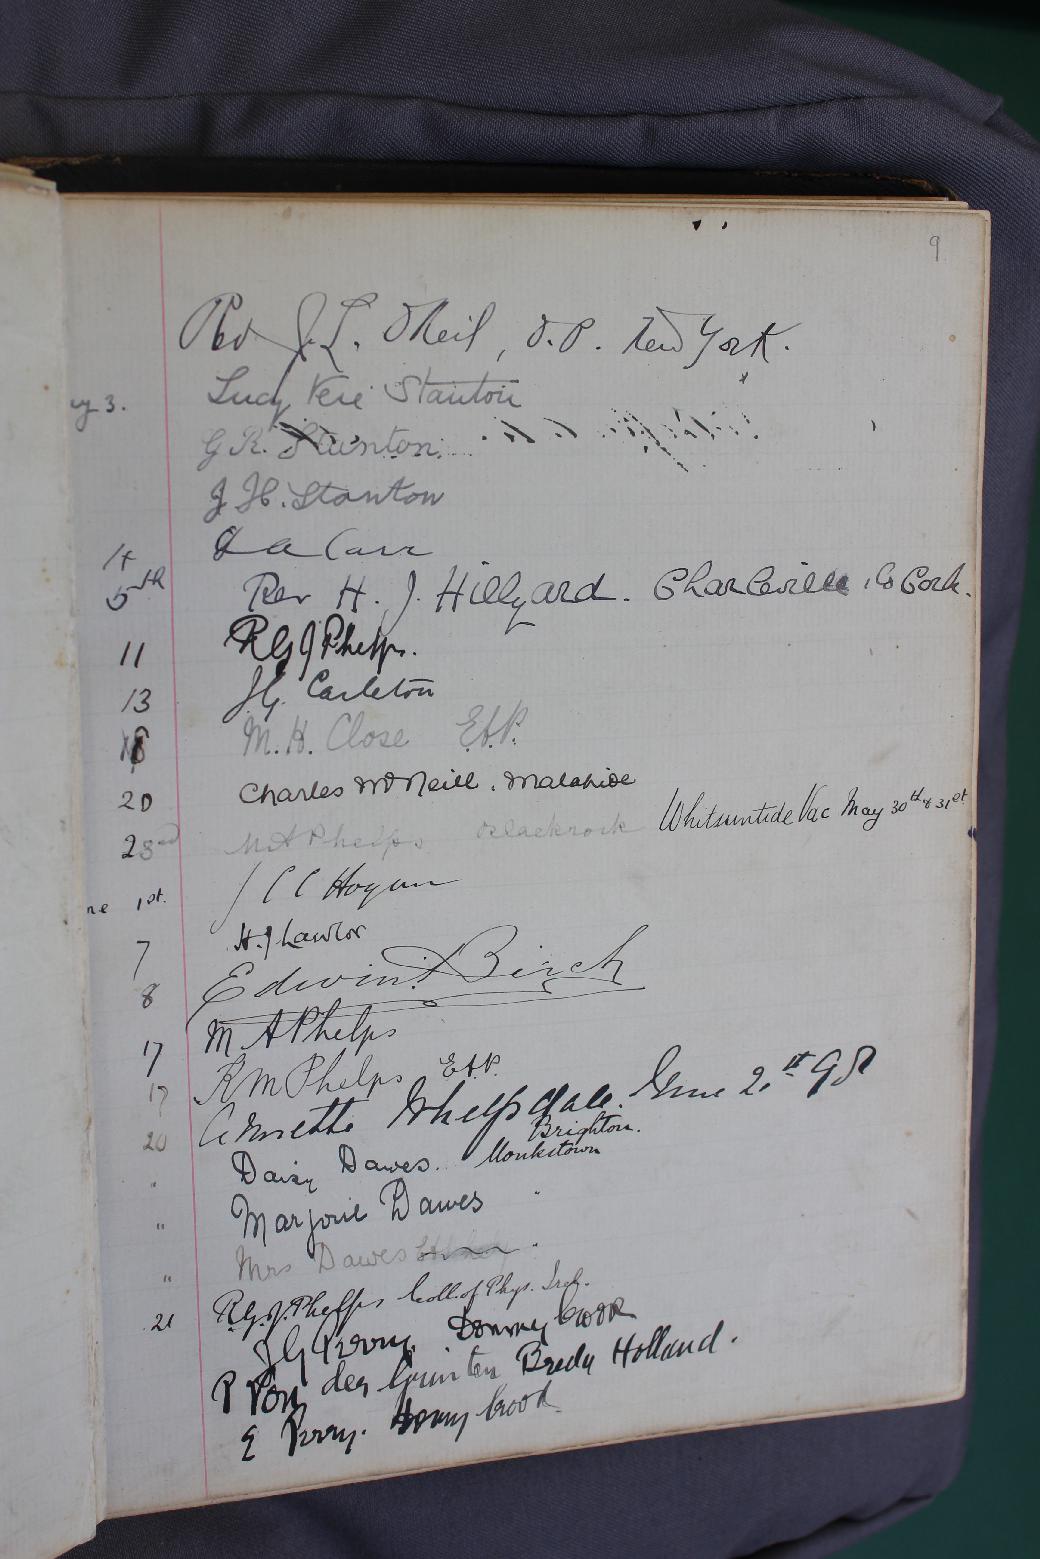 9
Revd J. L. O'Neil, O.P. New York.
ay 3. Lucy Vere Stanton
G. R. Stanton
J H. Stanton
14 a Carr
5th Rev H. J. Hillyard. Charleville Co Cork.
11 R G J Phelps.
13 J. G. Carleton
18 M. H. Close
20 Charles McNeill. Malahide
23rd M A Phelps Blackrock Whitsuntide Vac May 30th & 31st
ne 1st. J C C Hogan
7 H. J Lawlor
8 Edwin Birch
17 M A Phelps
17 R M Phelps
20 June 2 98
" Daisy Dawes. Brighton. Monkstown
" Marjorie Dawes "
" Mrs Dawes "
21 R. G. J. Phelps Coll. of Phys. Irel.
J G Perry. Donnybrook
P Von der Breda Holland.
E Perry. Donnybrook